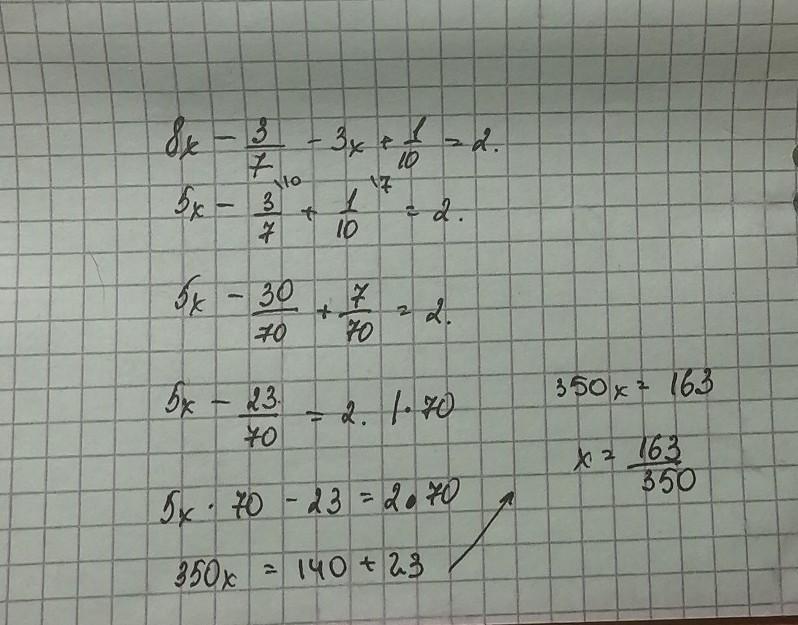 8x - 3/7 - 3x + 1/10 = 2.
5x - 3/7 \10 + 1/10 \7 = 2.
5x - 30/70 + 7/70 = 2.
5x - 23/70 = 2. |· 70
5x · 70 - 23 = 2 · 70
350x = 140 + 23
350x = 163
x = 163/350